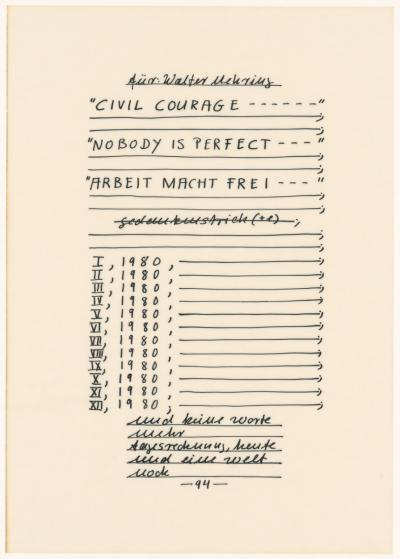 für: Walter Mehring
"CIVIL COURAGE ------"
"NOBODY IS PERFECT ---"
"ARBEIT MACHT FREI --- "
gedankenstrich(+e) ;
I, 1980,
II, 1980,
III, 1980,
IV, 1980,
V, 1980,
VI, 1980,
VII, 1980,
VIII, 1980,
IX, 1980,
X, 1980,
XI, 1980,
XII, 1980,
und keine worte
mehr
tagesrechnung, heute
und eine welt
noch
—94—